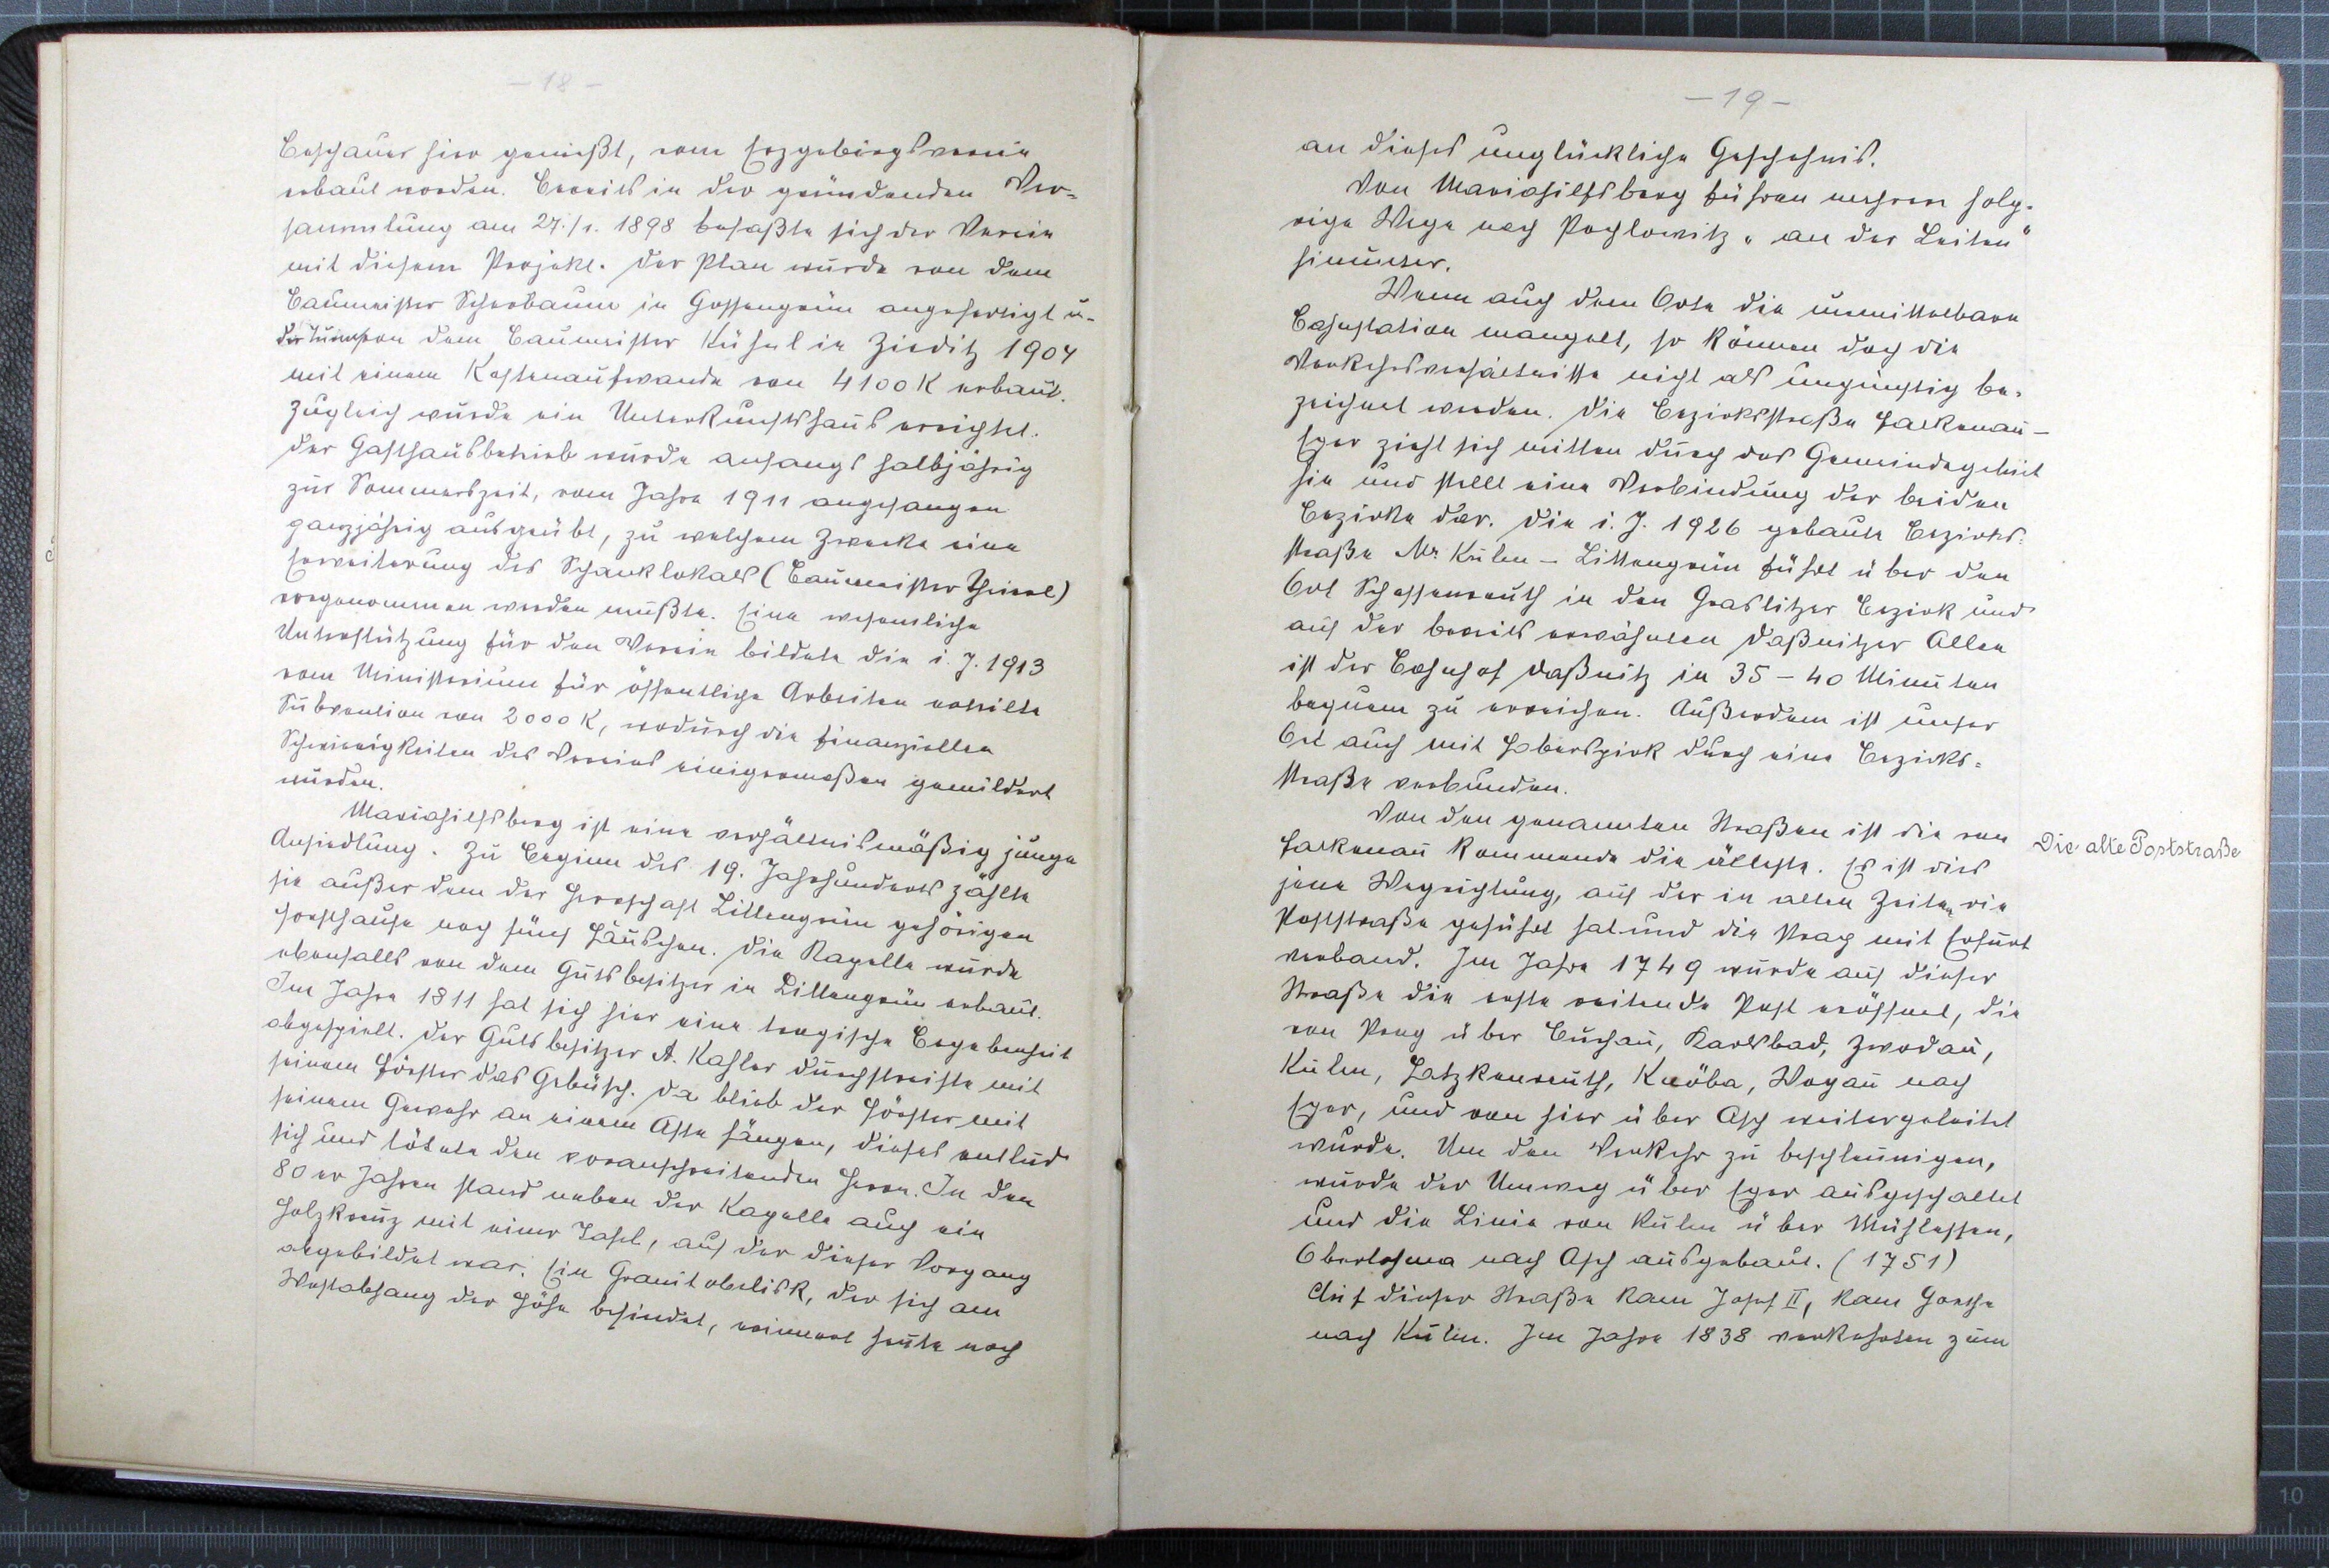 - 18 -
Beschauer hier genießt, vom Erzgebirgsverein
erbaut worden. Bereits in der gründenden Ver-
sammlung am 27./1. 1898 befaßte sich der Verein
mit diesem Projekt. Der Plan wurde von dem
Baumeister Scherbaum in Gossengrün angefertigt u.
der Turm von dem Baumeister Kühnl in Zieditz 1904
mit einem Kostenaufwande von 4100 K erbaut.
Zugleich wurde ein Unterkunftshaus errichtet.
Der Gasthausbetrieb wurde anfangs halbjährig
zur Sommerszeit, vom Jahre 1911 angefangen
ganzjährig ausgeübt, zu welchem Zwecke eine
Erweiterung des Schanklokals (Baumeister
vorgenommen werden mußte. Eine wesentliche
Unterstützung für den Verein bildete die i. J. 1913
vom Ministerium für öffentliche Arbeiten erteilte
Subvention von 2000 K, wodurch die finanziellen
Schwierigkeiten des Vereins einigermaßen gemildert
wurden.
Mariahilfsberg ist eine verhältnismäßig junge
Ansiedlung. Zu Beginn des 19. Jahrhunderts zählte
sie außer dem der Herrschaft Littengrün gehörigen
Forsthause noch fünf Häuschen. Die Kapelle wurde
ebenfalls von dem Gutsbesitzer in Littengrün erbaut.
Im Jahre 1811 hat sich hier eine tragische Begebenheit
abgespielt. Der Gutsbesitzer A. Kahler durchstreifte mit
seinem Förster das Gebüsch. Da blieb der Förster mit
seinem Gewehr an einem Aste hängen, dieses entlud
sich und tötete den voranschreitenden Herrn. In den
80er Jahren stand neben der Kapelle auch ein
Holzkreuz mit einer Tafel, auf der dieser Vorgang
abgebildet war. Ein Granitobelisk, der sich am
Westabhang der Höhe befindet, erinnert heute noch
- 19 -
an dieses unglückliche Geschehnis.
Von Mariahilfsberg führen mehrere holp-
rige Wege nach Pochlowitz „an der Leiten"
hinunter.
Wenn auch dem Orte die unmittelbare
Bahnstation mangelt, so können doch die
Verkehrsverhältnisse nicht als ungünstig be-
zeichnet werden. Die Bezirksstraße Falkenau -
Eger zieht sich mitten durch das Gemeindegebiet
hin und stellt eine Verbindung der beiden
Bezirke dar. Die i. J. 1926 gebaute Bezirks-
straße Ma. Kulm - Littengrün führt über den
Ort Schossenreuth in den Graslitzer Bezirk und
auf der bereits erwähnten Daßnitzer Allee
ist der Bahnhof Daßnitz in 35 - 40 Minuten
bequem zu erreichen. Außerdem ist unser
Ort auch mit Haberspirk durch eine Bezirks-
straße verbunden.
Von den genannten Straßen ist die von
Falkenau kommende die älteste. Es ist dies
jene Wegrichtung, auf der in alten Zeiten die
Poststraße geführt hat und die Prag mit Erfurt
verband. Im Jahre 1749 wurde auf dieser
Straße die erste reitende Post eröffnet, die
von Prag über Buchau, Karlsbad, Zwodau,
Kulm, Katzkenreuth, Knöba, Wogau nach
Eger, und von hier über Asch weitergeleitet
wurde. Um den Verkehr zu beschleunigen,
wurde der Umweg über Eger ausgeschaltet
und die Linie von Kulm über Mühlessen,
Oberlohma nach Asch ausgebaut. (1751)
Auf dieser Straße kam Josef II, kam Goethe
nach Kulm. Im Jahre 1838 verkehrten zum
Die alte Poststraße